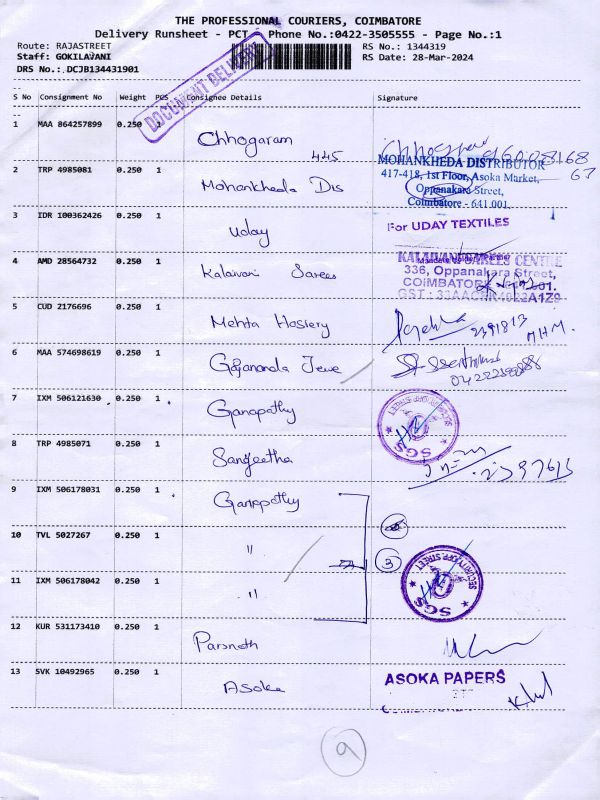 THE PROFESSIONAL COURIERS, COIMBATORE
Delivery Runsheet - PCT - Phone No.:0422-3505555 - Page No.:1
Route: RAJASTREET
RS No.: 1344319
Staff: GOKILAVANI
RS Date: 28-Mar-2024
DRS No.: DCJB134431901
DOCUMENT DELIVERY
S No Consignment No Weight PCS Consignee Details Signature
1 MAA 864257899 0.250 1 Chhogaram
445
2 TRP 4985081 0.250 1 Mohankheda Dis
MOHANKHEDA DISTRIBUTOR
417-418, 1st Floor, Asoka Market,
Oppanakara Street,
Coimbatore - 641 001.
3 IDR 100362426 0.250 1 Uday
For UDAY TEXTILES
4 AMD 28564732 0.250 1 Kalaivani Sarees
KALAIVANI SAREES CENTRE
336, Oppanakara Street,
COIMBATORE
5 CUD 2176696 0.250 1 Mehta Hosiery
2391813
MHM.
6 MAA 574698619 0.250 1 Gajananda Jewe
7 IXM 506121630 0.250 1 Ganapathy
SGS
8 TRP 4985071 0.250 1 Sangeetha
2397615
9 IXM 506178031 0.250 1 Ganapathy
10 TVL 5027267 0.250 1 "
3
11 IXM 506178042 0.250 1 "
SGS
12 KUR 531173410 0.250 1 Parsnath
13 SVK 10492965 0.250 1 Asoka
ASOKA PAPERS
9